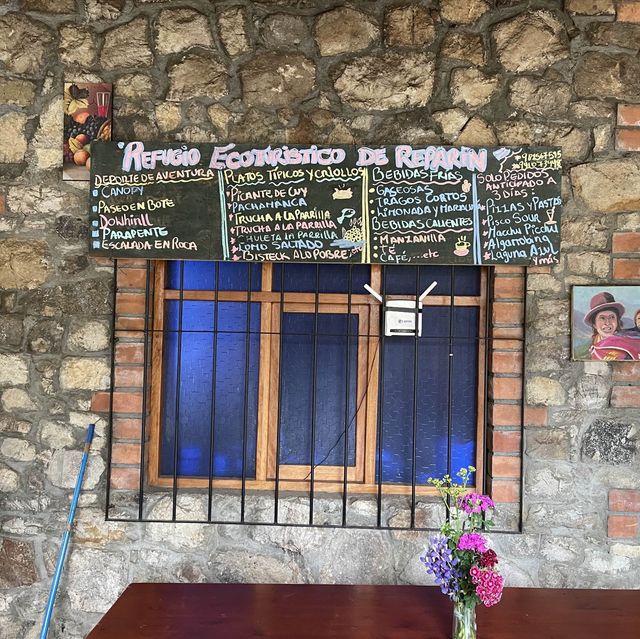 REFUGIO ECOTURISTICO DE REPARIN
DEPORTE DE AVENTURA
CANOPY
PASEO EN BOTE
DOWNHILL
PARAPENTE
ESCALADA EN ROCA
PLATOS TIPICOS Y CRIOLLOS
PICANTE DE CUY
PACHAMANCA
TRUCHA A LA PARRILLA
TRUCHA A LA PARRILLA
CHULETA LA PARRILLA
LOMO SALTADO
BISTECK A LO POBRE, etc
BEBIDAS FRIAS
GASEOSAS
TRAGOS CORTOS
LIMONADA Y MARACUYA
BEBIDAS CALIENTES
MANZANILLA
TÉ
CAFÉ,...etc
SOLO PEDIDOS
ANTICIPADO A
3 DIAS:
PIZZAS Y PASTAS
PISCO SOUR
MACCHU PICCHU
ALGARROBINA
LAGUNA AZUL
Y más